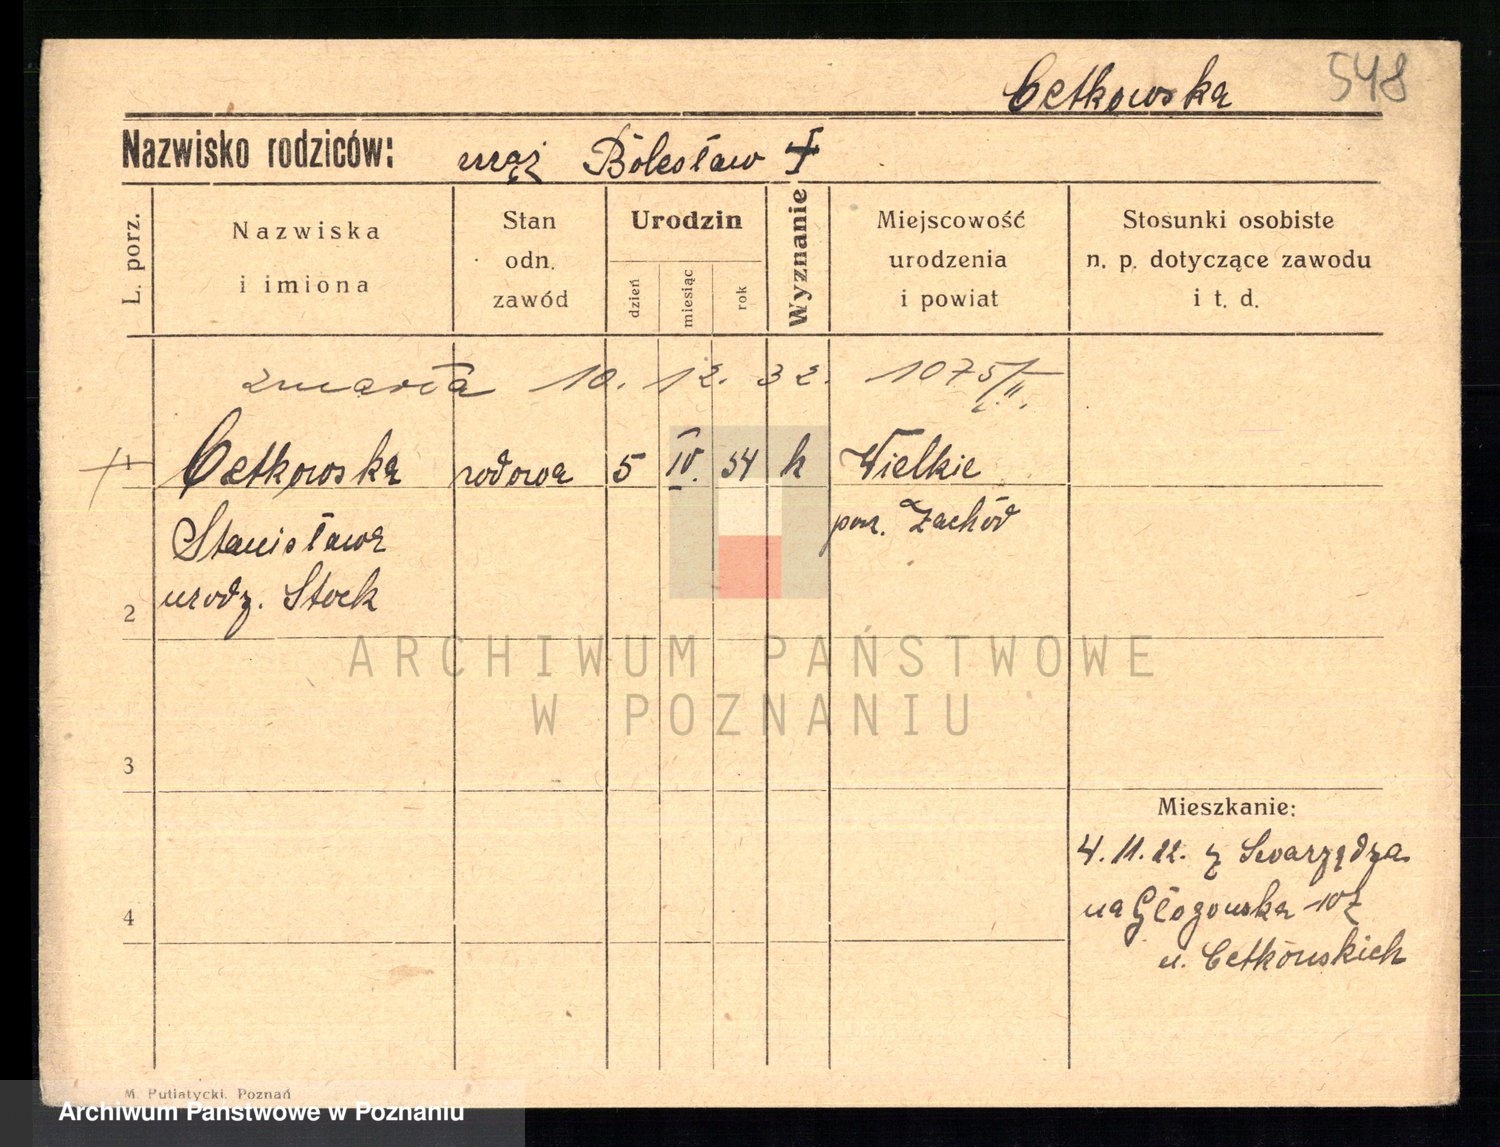 Cetkowska 548
Nazwisko rodziców: mąż Bolesław †
L. porz.
Nazwiska
i imiona
Stan
odn.
zawód
Urodzin
dzień
miesiąc
rok
Wyznanie
Miejscowość
urodzenia
i powiat
Stosunki osobiste
n. p. dotyczące zawodu
i t. d.
zmarła 10. 12. 32. 1075/II.
1 Cetkowska wdowa 5 IV. 54 k Wielkie
pow. Zachód
Stanisława
2 urodz. Stock
ARCHIWUM PAŃSTWOWE
W POZNANIU
3
Mieszkanie:
4. 11. 22. z Swarzędza
4 na Głogowska
u. Cetkowskich
M. Putiatycki, Poznań
Archiwum Państwowe w Poznaniu